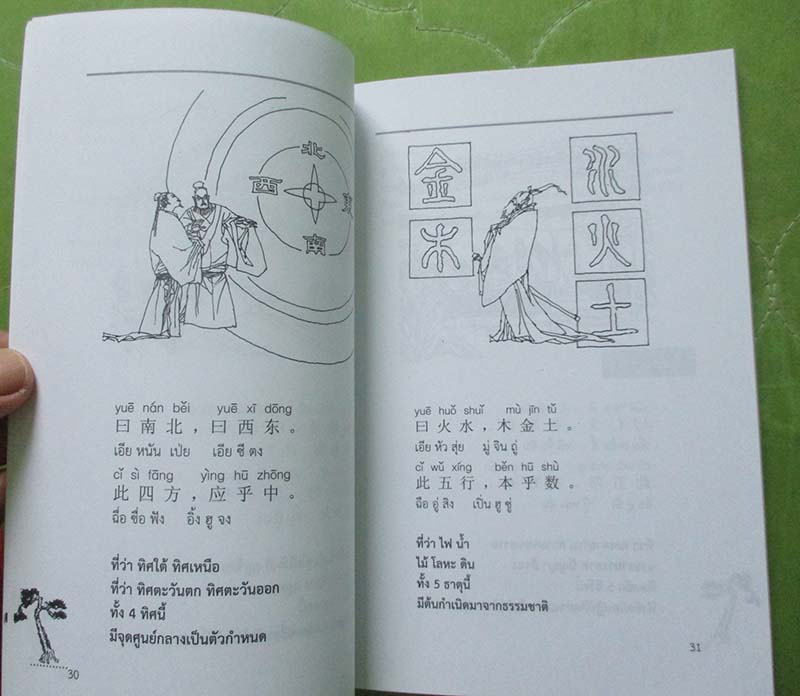 北
西
南
yuē nán běi yuē xī dōng
曰南北，曰西东。
เอีย หนัน เป่ย เอีย ซี ตง
cǐ sì fāng yìng hū zhōng
此四方，应乎中。
ฉื่อ ซื่อ ฟัง อิ้ง ฮู จง
ที่ว่า ทิศใต้ ทิศเหนือ
ที่ว่า ทิศตะวันตก ทิศตะวันออก
ทั้ง 4 ทิศนี้
มีจุดศูนย์กลางเป็นตัวกำหนด
30
金 水
木 火
土
yuē huǒ shuǐ mù jīn tǔ
曰火水，木金土。
เอีย หัว สุ่ย มู่ จิน ถู่
cǐ wǔ xíng běn hū shù
此五行，本乎数。
ฉือ อู่ สิง เปิ่น ฮู ซู่
ที่ว่า ไฟ น้ำ
ไม้ โลหะ ดิน
ทั้ง 5 ธาตุนี้
มีต้นกำเนิดมาจากธรรมชาติ
31